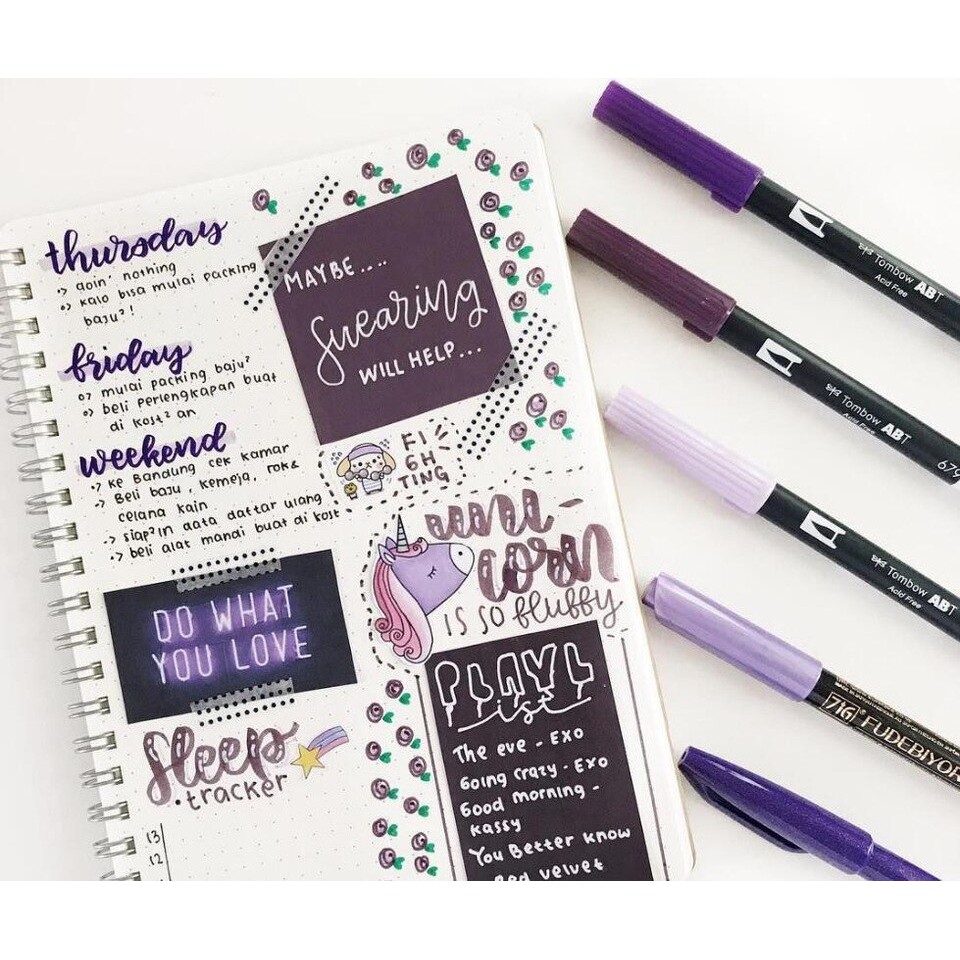 thursday
·> doin' nothing
·> kalo bisa mulai packing
baju²!
friday
·> mulai packing baju²
·> beli perlengkapan buat
di kost² an
weekend
·> ke Bandung cek kamar
·> Beli baju, kemeja, rok &
celana kain
·> siap²in data daftar ulang
·> beli alat mandi buat di kost
DO WHAT
YOU LOVE
Sleep
tracker
13
12
MAYBE....
Swearing
WILL HELP...
FI
GH
TING
uni-
corn
IS SO fluffy
PLAYL
ist
The eve - EXO
Going crazy - EXO
Good morning -
Kassy
You Better know
Red velvet
Tombow ABT
Acid Free
Tombow ABT
679
Tombow ABT
Acid Free
Tombow ABT
Acid Free
ZIG FUDEBIYOR